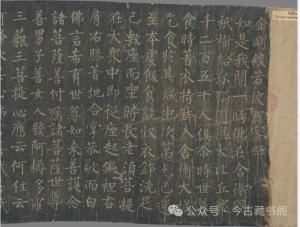 金剛般若波羅蜜經
如是我聞一時佛在舍衛國
祇樹給孤獨園與大比丘衆
千二百五十人俱尒時世尊
食時著衣持鉢入舍衛大城
乞食於其城中次第乞已還
至本處飯食訖收衣鉢洗足
已敷座而坐時長老須菩提
在大衆中即從座起偏袒右
肩右膝著地合掌恭敬而白
佛言希有世尊如來善護念
諸菩薩善付囑諸菩薩世尊
善男子善女人發阿耨多羅
三藐三菩提心應云何住云
公众号·今古藏书阁